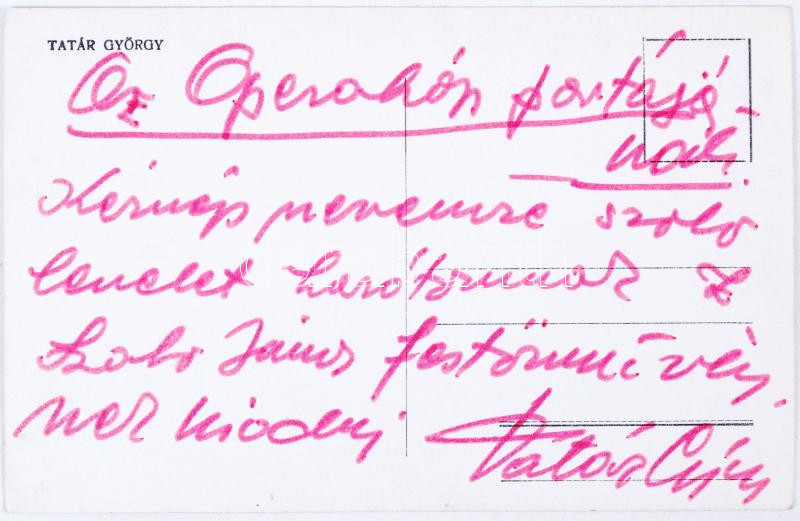 TATÁR GYÖRGY
Az Operaház portásá-
nak.
Kérném nevemre szóló
levelet barátomnak
Szabó János festőművész
nek kiadni
Tatár György